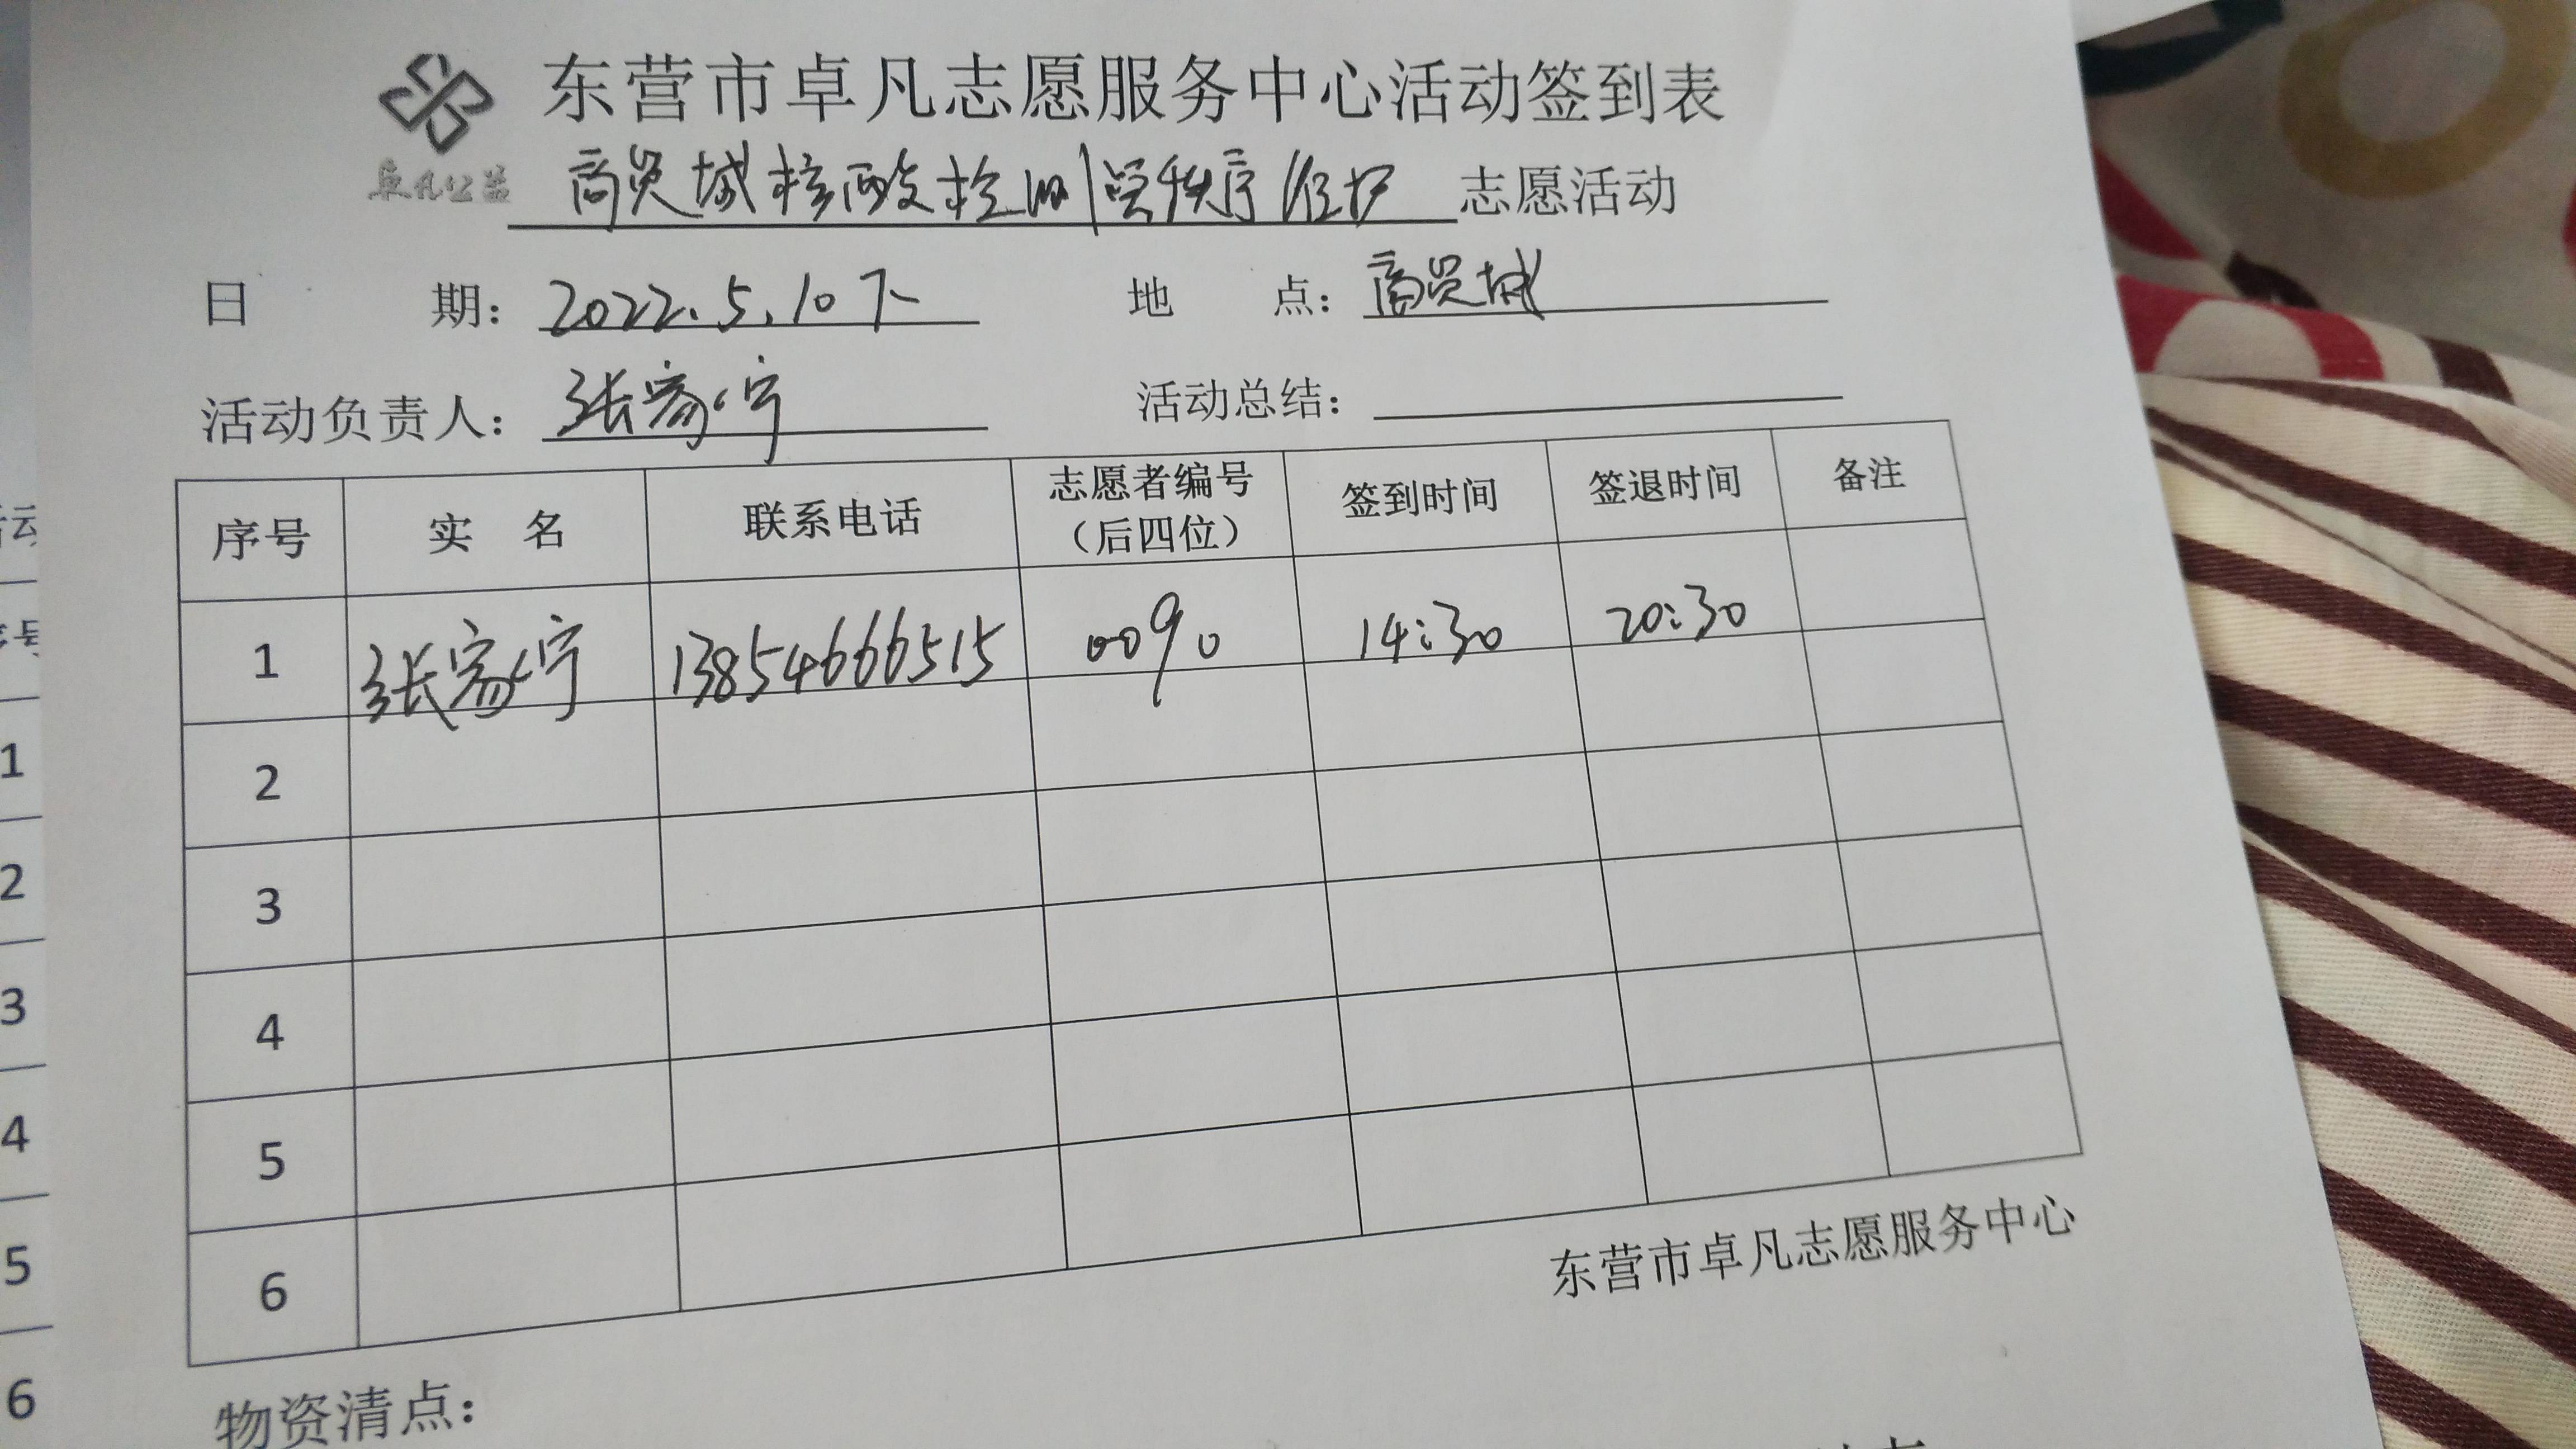 东营市卓凡志愿服务中心活动签到表
卓凡公益
商贸城核酸检测点秩序维护 志愿活动
日 期：2022.5.10下 地 点：商贸城
活动负责人：张家宁 活动总结：
序号 实 名 联系电话 志愿者编号（后四位） 签到时间 签退时间 备注
1 张家宁 13854666515 0090 14:30 20:30
2
3
4
5
6
东营市卓凡志愿服务中心
物资清点：
1
2
3
4
5
6